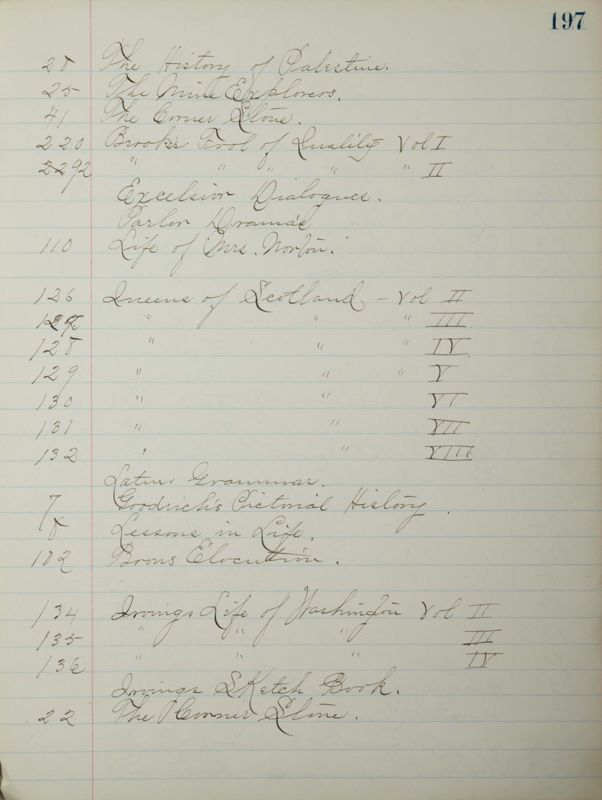 197
28 The History of Palestine.
25 The Mine Explorers.
41 The Corner Stone.
220 Brooks Fool of Quality Vol I
2292 " " " " " II
Excelsior Dialogues.
Parlor Dramas
110 Life of Mrs. Norton.
126 Queens of Scotland - Vol II
" " " III
128 " " " IV
129 " " " V
130 " " VI
131 " " VII
132 " " VIII
Latin Grammar.
7 Goodrich's Pictorial History.
8 Lessons in Life.
102 Brons Elocution.
134 Irvings Life of Washington Vol II
135 " " " III
136 " " " IV
Irvings Sketch Book.
22 The Corner Stone.